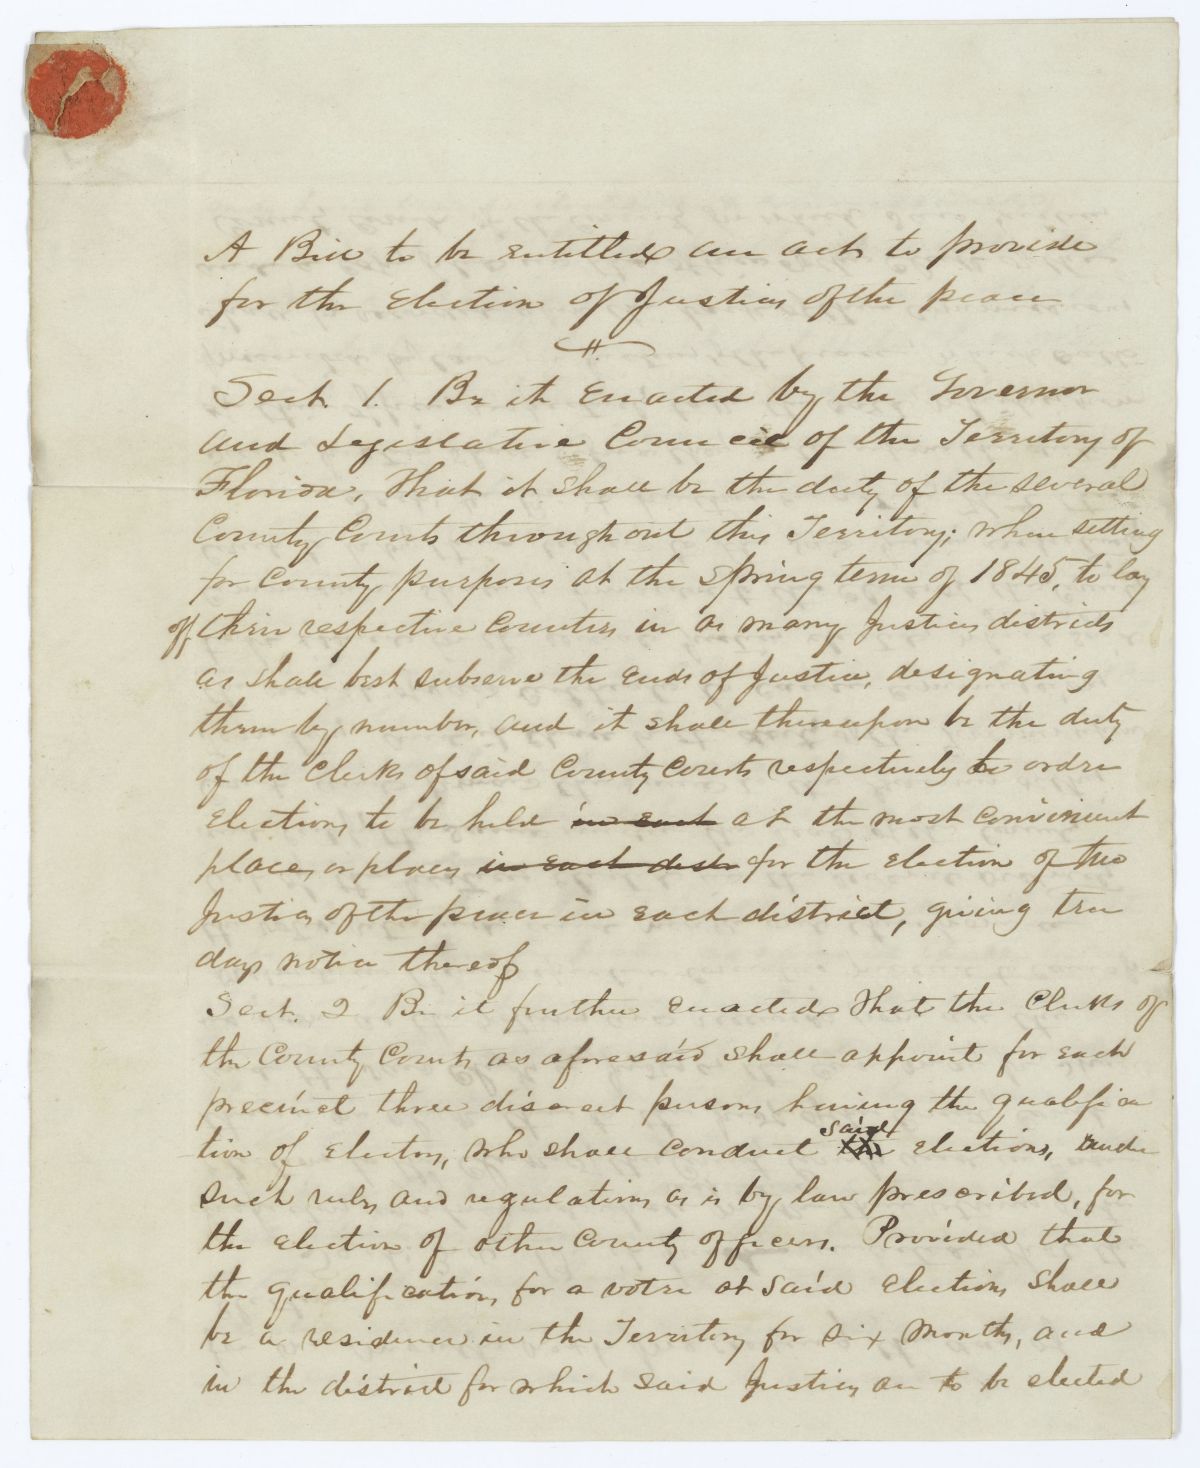 A Bill to be entitled an act to provide
for the Election of Justices of the peace
Sect. 1. Be it Enacted by the Governor
and Legislative Council of the Territory of
Florida, That it shall be the duty of the several
County Courts throughout this Territory; when setting
for County purposes at the Spring term of 1845, to lay
off their respective Counties in as many Justices districts
as shall best subserve the ends of Justice, designating
them by number, and it shall thereupon be the duty
of the Clerks of said County Courts respectively to order
Elections to be held in each at the most convenient
place, or places in each distr for the Election of two
Justices of the peace in each district, giving ten
days notice thereof
Sect. 2 Be it further enacted That the Clerks of
the County Courts as aforesaid shall appoint for each
precinct three discreet persons having the qualifica
tion of Electors, who shall conduct said elections, under
such rules and regulations as is by law prescribed, for
the election of other County officers. Provided that
the qualifications for a voter at said elections shall
be a residence in the Territory for six Months, and
in the district for which said Justices are to be elected